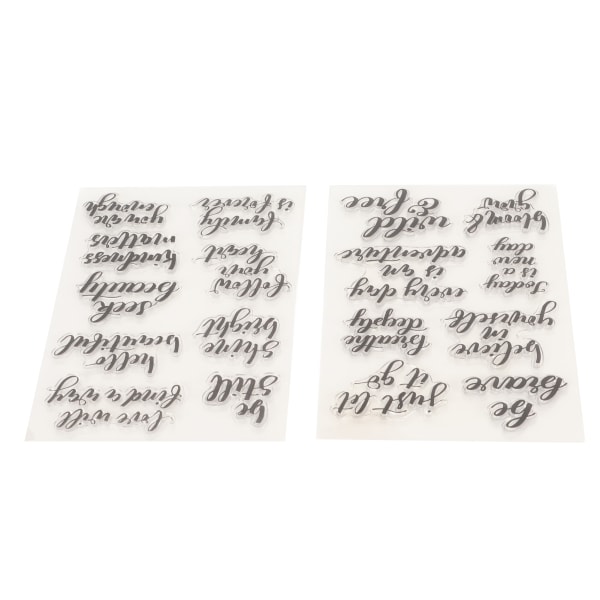 love will
find a way
be
still
hello
beautiful
shine
bright
seek
beauty
follow
your
heart
kindness
matters
family
is forever
you are
enough
just let
it go
be
brave
breathe
deeply
believe
in
yourself
every day
is an
adventure
today
is a
new
day
wild
& free
bloom &
grow